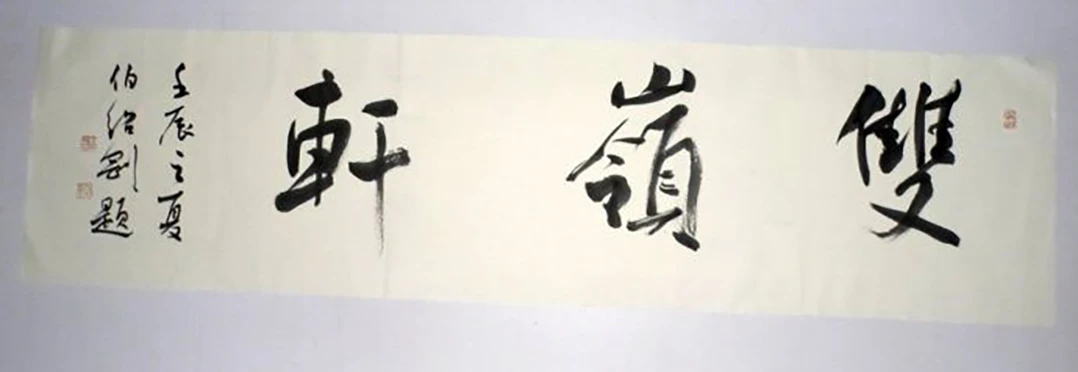 雙嶺軒
壬辰之夏
伯紹剛題